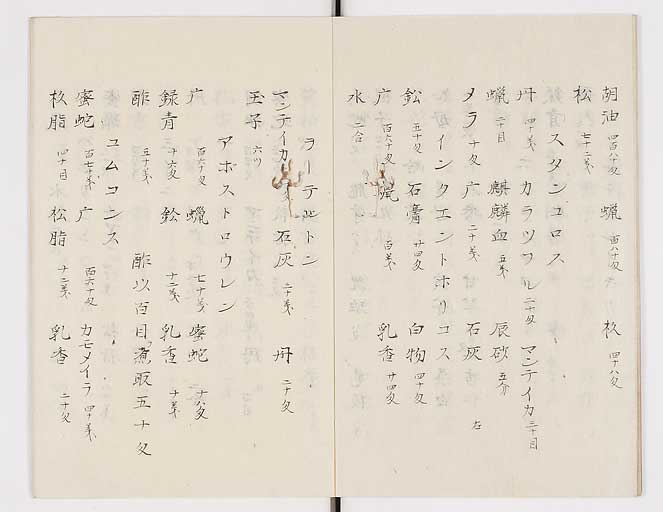 胡油 四百八十匁 蝋 百八十匁 杦 四十八匁
松 七十二匁
スタンコロス
丹 四十匁 カラツフル 二十匁 マンテイカ 三十目
蝋 二十目 麒麟血 五匁 辰砂 五分
メラ 十匁 广 二十匁 石灰 右
インクエントホリコス
鈆 五十匁 石膏 廿四匁 白物 四十匁
广 百六十匁 蝋 百匁 乳香 廿四匁
水 二合
ラーテルトン
マンテイカ 石灰 二十匁 丹 二十匁
玉子 六ツ
アホストロウレン
广 百六十匁 蝋 七十匁 蜜蛇 十六匁
録青 十六匁 鈆 十二匁 乳香 十匁
酢 五十匁 酢以百目煮取五十匁
ユムコンス
蜜蛇 百七十匁 广 百六十匁 カモメイラ 四十匁
杦脂 四十目 松脂 十二匁 乳香 二十匁